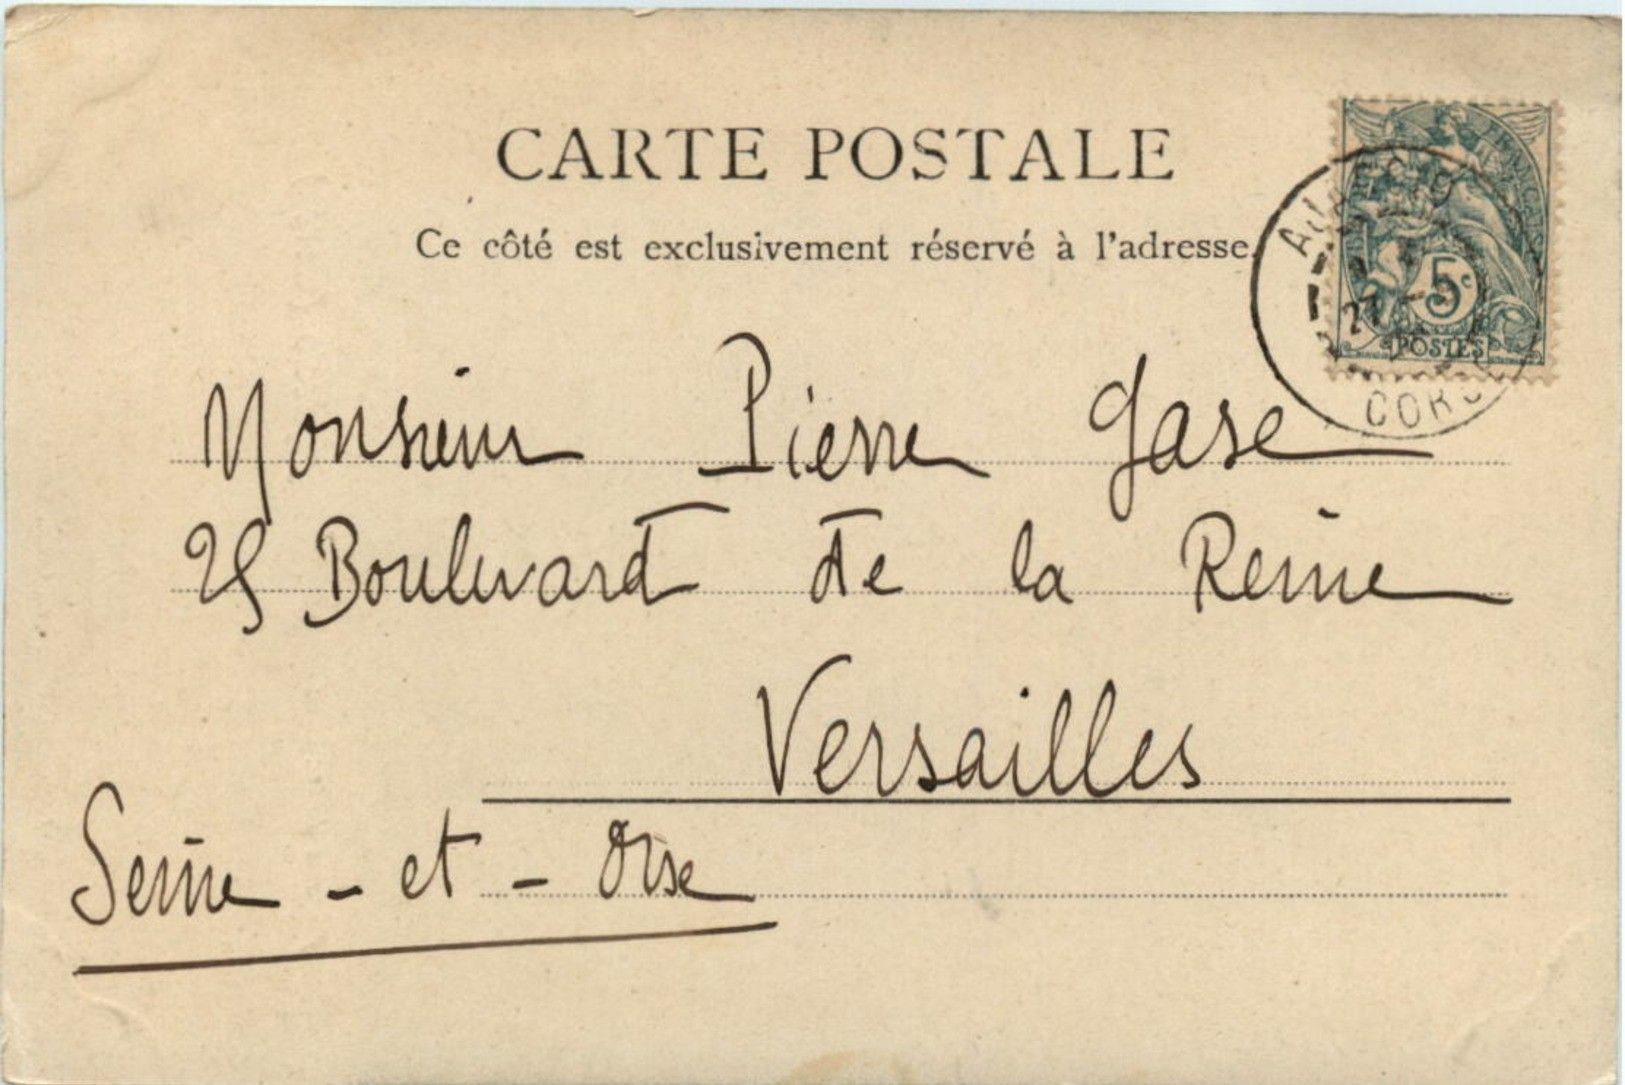 CARTE POSTALE
Ce côté est exclusivement réservé à l'adresse.
5c
POSTES
27
Monsieur Pierre Gase
25 Boulevard de la Reine
Versailles
Seine-et-Oise